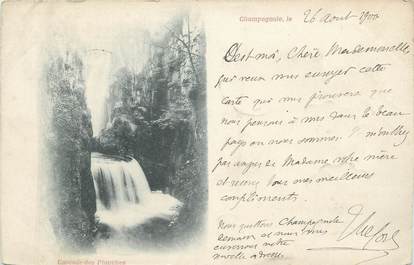 Champagnole, le 26 Août 1900
C'est moi, Chère Mademoiselle,
qui veux vous envoyer cette
carte qui vous prouvera que
nous pensons à vous dans le beau
pays où nous sommes. N'oubliez
pas auprès de Madame votre mère
et recevez tous mes meilleurs
compliments.
Nous quittons Champagnole
demain et nous vous
enverrons notre
nouvelle adresse.
Cascade des Planches